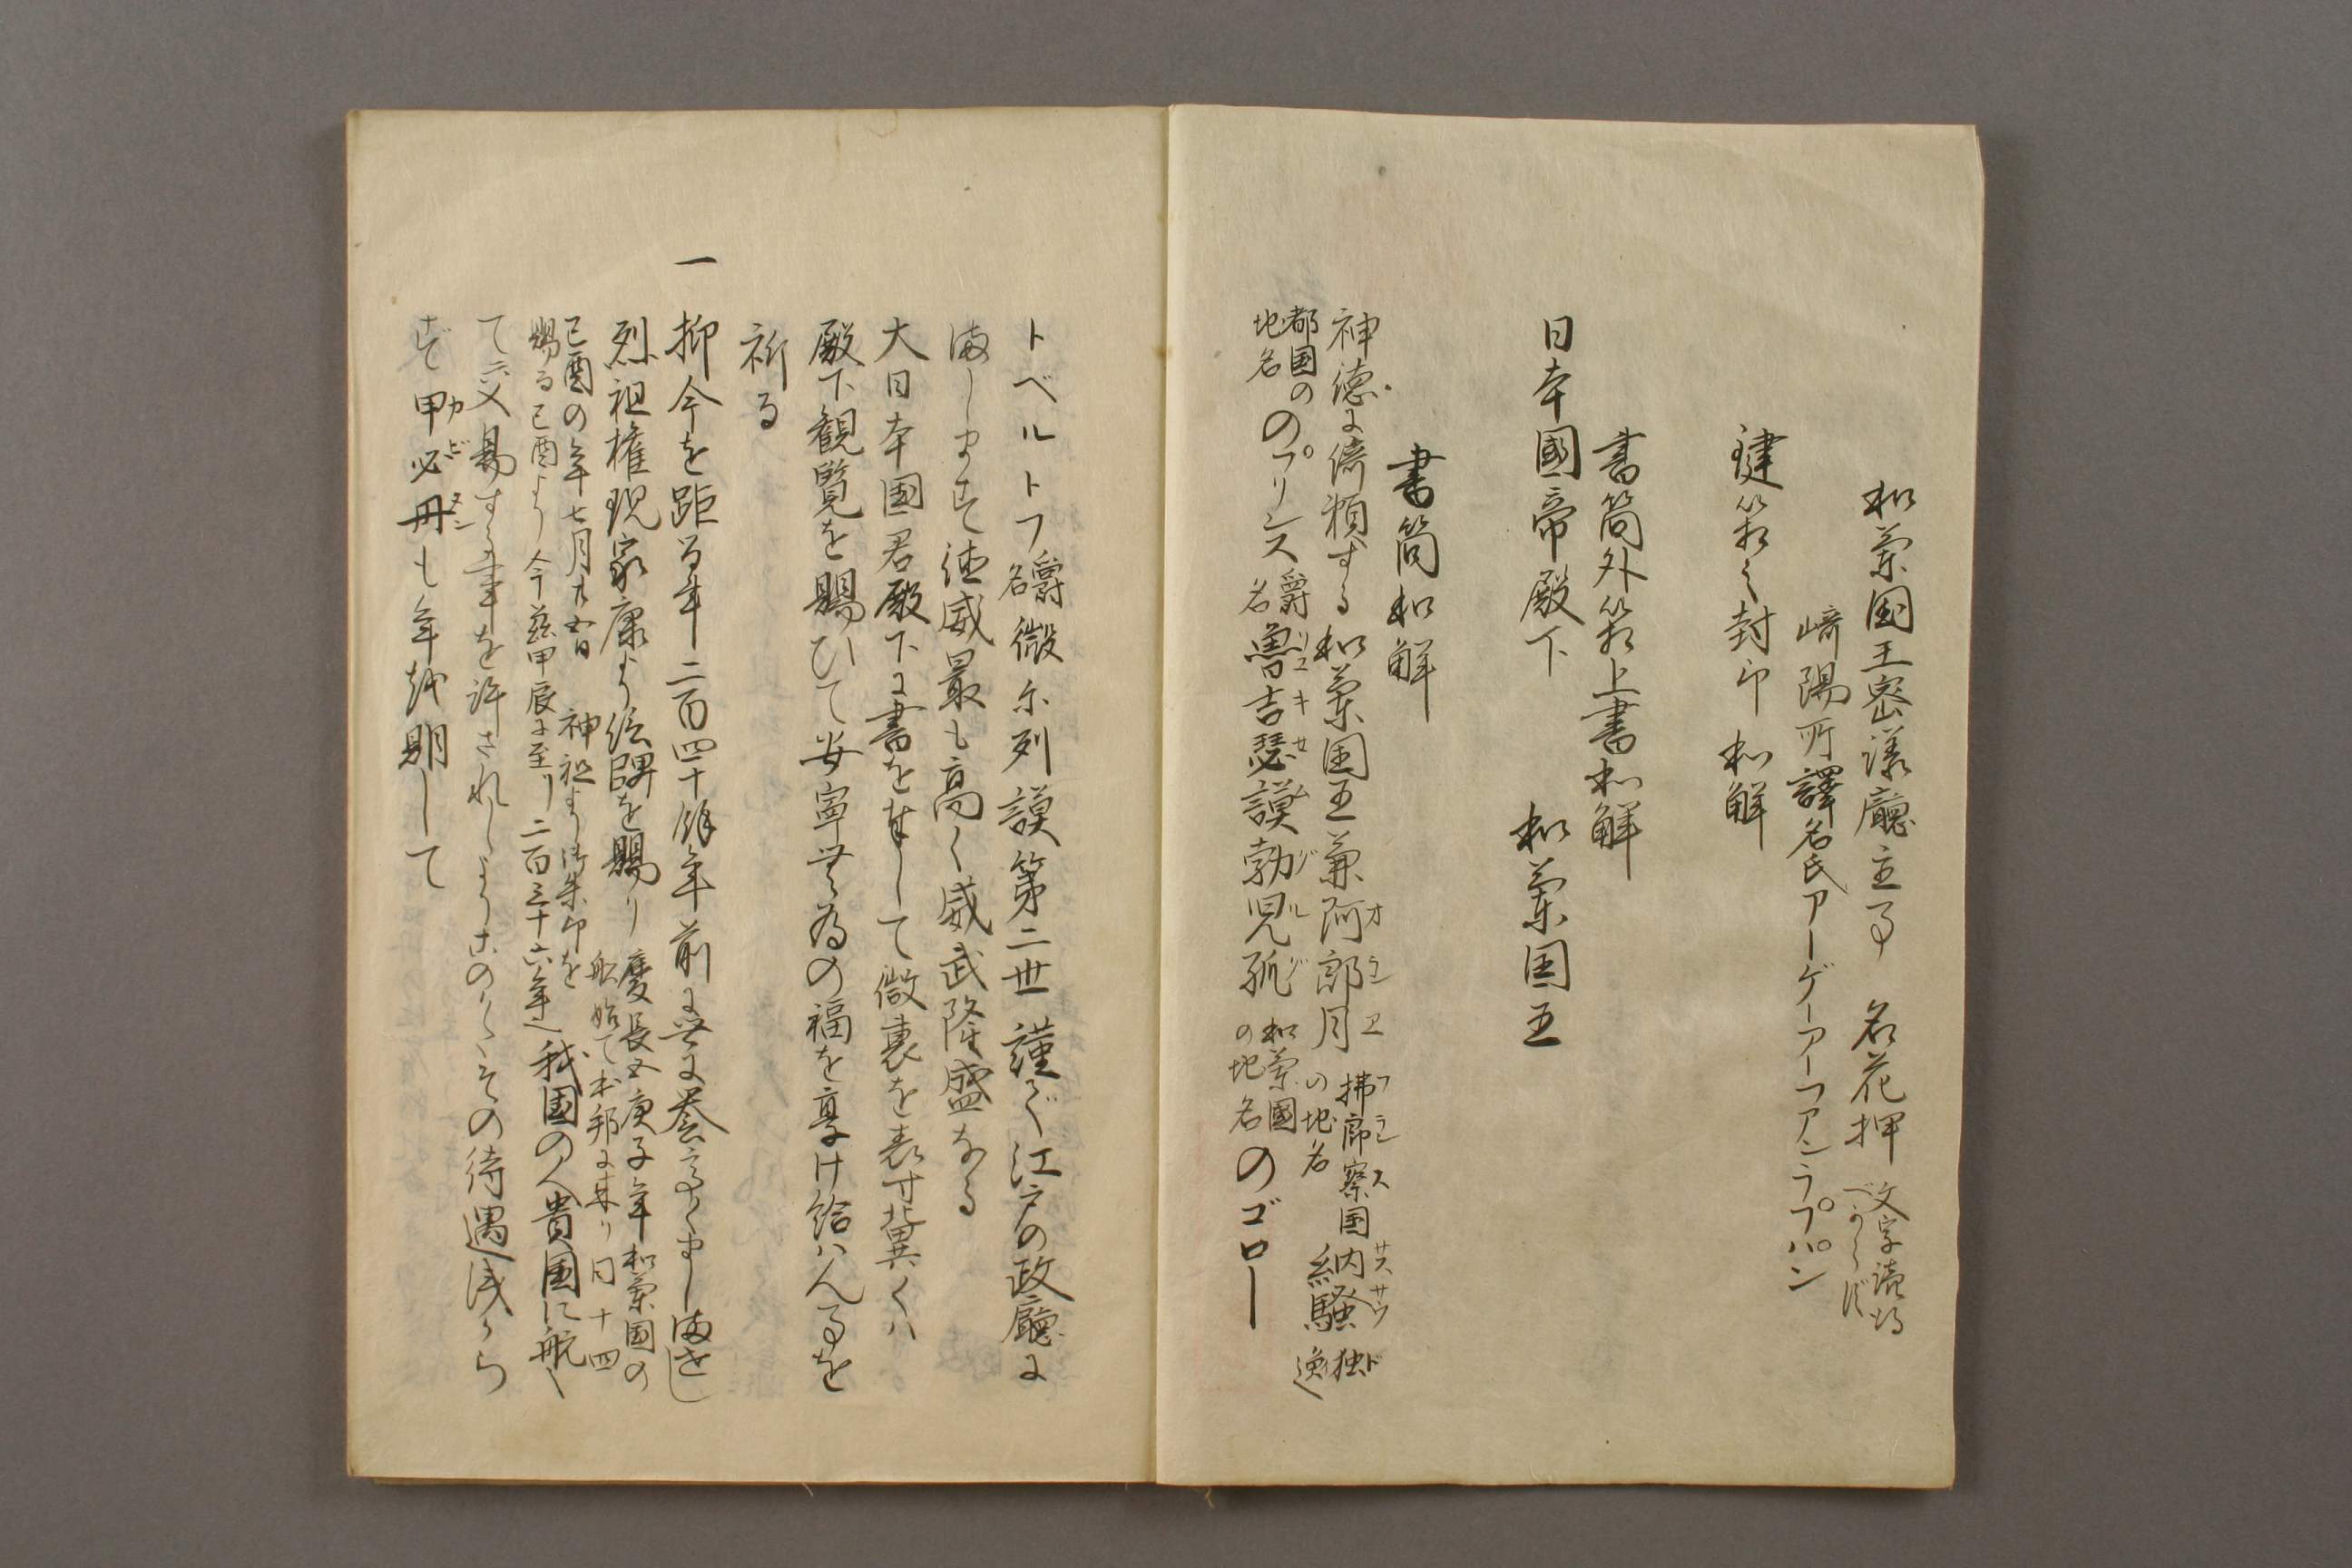 和蘭国王密議廳主事　名花押　文字読得べからず
崎陽所譯名氏アーゲーアーフアンラプパン
鍵箱之封印和解
書簡外箱上書和解
日本國帝殿下　和蘭国王
書簡和解
神徳に倚頼する和蘭国王兼阿郎月オランエ　拂郎察フランス国の地名　納騒ナスサウ　独ド逸
都国の地名のプリンス　爵名　魯吉瑟謨勃児孤リユキセムブルグ　和蘭國の地名　のゴロー
トベルトフ　爵名　微尓列謨第二世謹で江戸の政廳に
満します徳威最も高く威武隆盛なる
大日本國君殿下に書を奉して微衷を表す冀くハ
殿下観覧を賜ひて安寧無為の福を享け給ハん事を
祈る
一　抑今を距る事二百四十餘年前に世に誉高くましませし
烈祖権現家康より信牌を賜り　慶長五庚子年和蘭国の船始て本邦に来り同十四
己酉の年七月廿五日　神祖より御朱印を賜る己酉より今茲甲辰に至り二百三十六年也　我国の人貴国に航し
て交易する事を許されしよりこのかたその待遇浅から
す甲必丹カピタンも年を期して